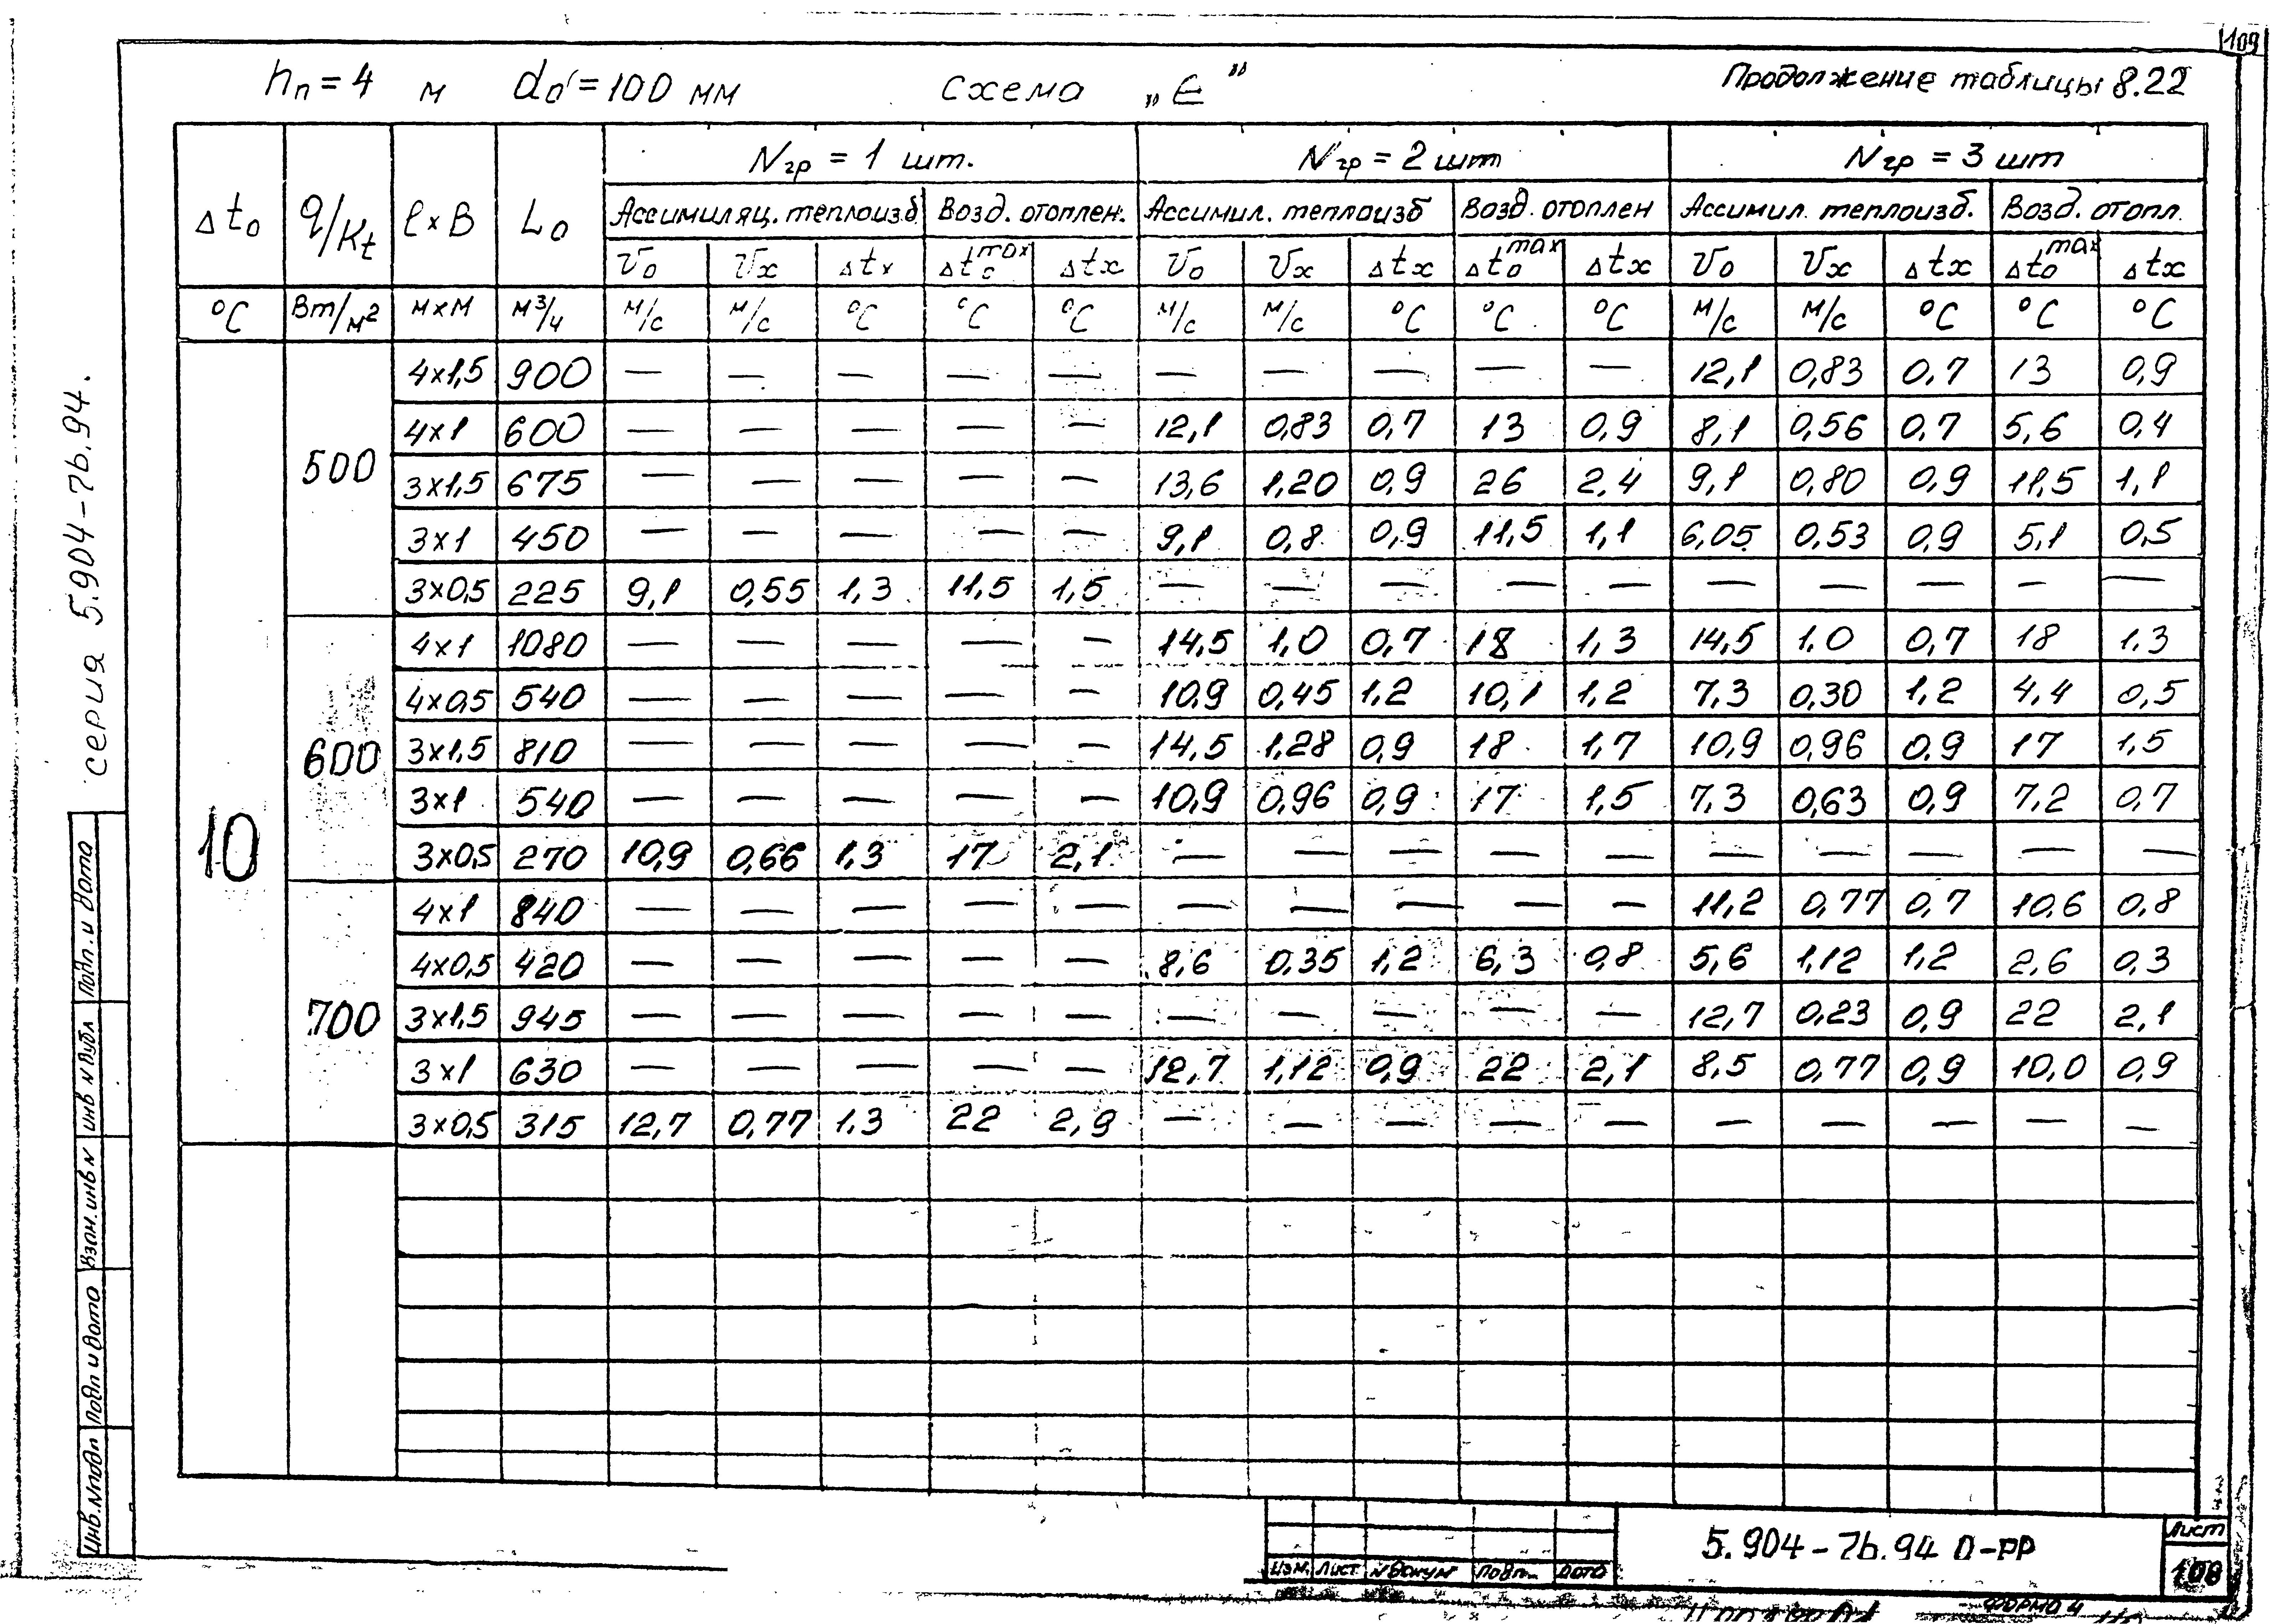 109
hп = 4 м d₀ = 100 мм схема „Е"
Продолжение таблицы 8.22
Δt₀ q/Kt ℓ×B L₀ Nгр = 1 шт. Nгр = 2 шт Nгр = 3 шт
Ассимиляц. теплоизб. Возд. отоплен. Ассимил. теплоизб Возд. отоплен Ассимил. теплоизб. Возд. отопл.
V₀ Vx Δtx Δt₀max Δtx V₀ Vx Δtx Δt₀max Δtx V₀ Vx Δtx Δt₀max Δtx
°C Вт/м² м×м м³/ч м/с м/с °C °C °C м/с м/с °C °C °C м/с м/с °C °C °C
10
500
4×1,5 900 — — — — — — — — — — 12,1 0,83 0,7 13 0,9
4×1 600 — — — — — 12,1 0,83 0,7 13 0,9 8,1 0,56 0,7 5,6 0,4
3×1,5 675 — — — — — 13,6 1,20 0,9 26 2,4 9,1 0,80 0,9 11,5 1,1
3×1 450 — — — — — 9,1 0,8 0,9 11,5 1,1 6,05 0,53 0,9 5,1 0,5
3×0,5 225 9,1 0,55 1,3 11,5 1,5 — — — — — — — — — —
600
4×1 1080 — — — — — 14,5 1,0 0,7 18 1,3 14,5 1,0 0,7 18 1,3
4×0,5 540 — — — — — 10,9 0,45 1,2 10,1 1,2 7,3 0,30 1,2 4,4 0,5
3×1,5 810 — — — — — 14,5 1,28 0,9 18 1,7 10,9 0,96 0,9 17 1,5
3×1 540 — — — — — 10,9 0,96 0,9 17 1,5 7,3 0,63 0,9 7,2 0,7
3×0,5 270 10,9 0,66 1,3 17 2,1 — — — — — — — — — —
700
4×1 840 — — — — — — — — — — 11,2 0,77 0,7 10,6 0,8
4×0,5 420 — — — — — 8,6 0,35 1,2 6,3 0,8 5,6 1,12 1,2 2,6 0,3
3×1,5 945 — — — — — — — — — — 12,7 0,23 0,9 22 2,1
3×1 630 — — — — — 12,7 1,12 0,9 22 2,1 8,5 0,77 0,9 10,0 0,9
3×0,5 315 12,7 0,77 1,3 22 2,9 — — — — — — — — — —
серия 5.904-7b.94.
Подп. и дата
инв N дубл
Взам. инв N
Подп и дата
Инв. N подл
Изм. Лист N докум Подп. Дата
5.904-7b.94 0-РР
Лист
108
формо 4